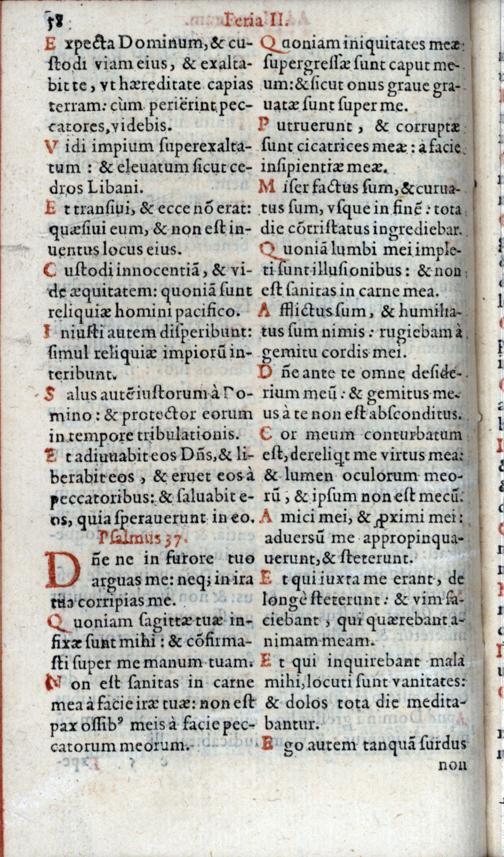 58
Feria II.
Expecta Dominum, & cu-
ſtodi viam eius, & exalta-
bit te, vt hæreditate capias
terram: cùm perierint pec-
catores, videbis.
Vidi impium ſuperexalta-
tum : & eleuatum ſicut ce-
dros Libani.
Et tranſiui, & ecce nõ erat:
quæſiui eum, & non eſt in-
uentus locus eius.
Cuſtodi innocentiã, & vi-
de æquitatem: quoniã ſunt
reliquiæ homini pacifico.
Iniuſti autem diſperibunt:
ſimul reliquiæ impiorũ in-
teribunt.
Salus autẽ iuſtorum à Do-
mino : & protector eorum
in tempore tribulationis.
Et adiuuabit eos Dñs, & li-
berabit eos, & eruet eos à
peccatoribus: & ſaluabit e-
os, quia ſperauerunt in eo.
Pſalmus 37.
Dñe ne in furore tuo
arguas me: neq; in ira
tua corripias me.
Quoniam ſagittæ tuæ in-
fixæ ſunt mihi : & cõfirma-
ſti ſuper me manum tuam.
Non eſt ſanitas in carne
mea à facie iræ tuæ: non eſt
pax oſſibꝰ meis à facie pec-
catorum meorum.
Quoniam iniquitates meæ
ſupergreſſæ ſunt caput me-
um: & ſicut onus graue gra-
uatæ ſunt ſuper me.
Putruerunt, & corruptæ
ſunt cicatrices meæ : à facie
inſipientiæ meæ.
Miſer factus ſum, & curua-
tus ſum, vſque in finẽ : tota
die cõtriſtatus ingrediebar.
Quoniã lumbi mei imple-
ti ſunt illuſionibus : & non
eſt ſanitas in carne mea.
Afflictus ſum, & humilia-
tus ſum nimis : rugiebam à
gemitu cordis mei.
Dñe ante te omne deſide-
rium meũ : & gemitus me-
us à te non eſt abſconditus.
Cor meum conturbatum
eſt, dereliqt me virtus mea:
& lumen oculorum meo-
rũ, & ipſum non eſt mecũ.
Amici mei, & ꝓximi mei :
aduersũ me appropinqua-
uerunt, & ſteterunt.
Et qui iuxta me erant, de
longè ſteterunt : & vim fa-
ciebant, qui quærebant a-
nimam meam.
Et qui inquirebant mala
mihi, locuti ſunt vanitates:
& dolos tota die medita-
bantur.
Ego autem tanquã ſurdus
non